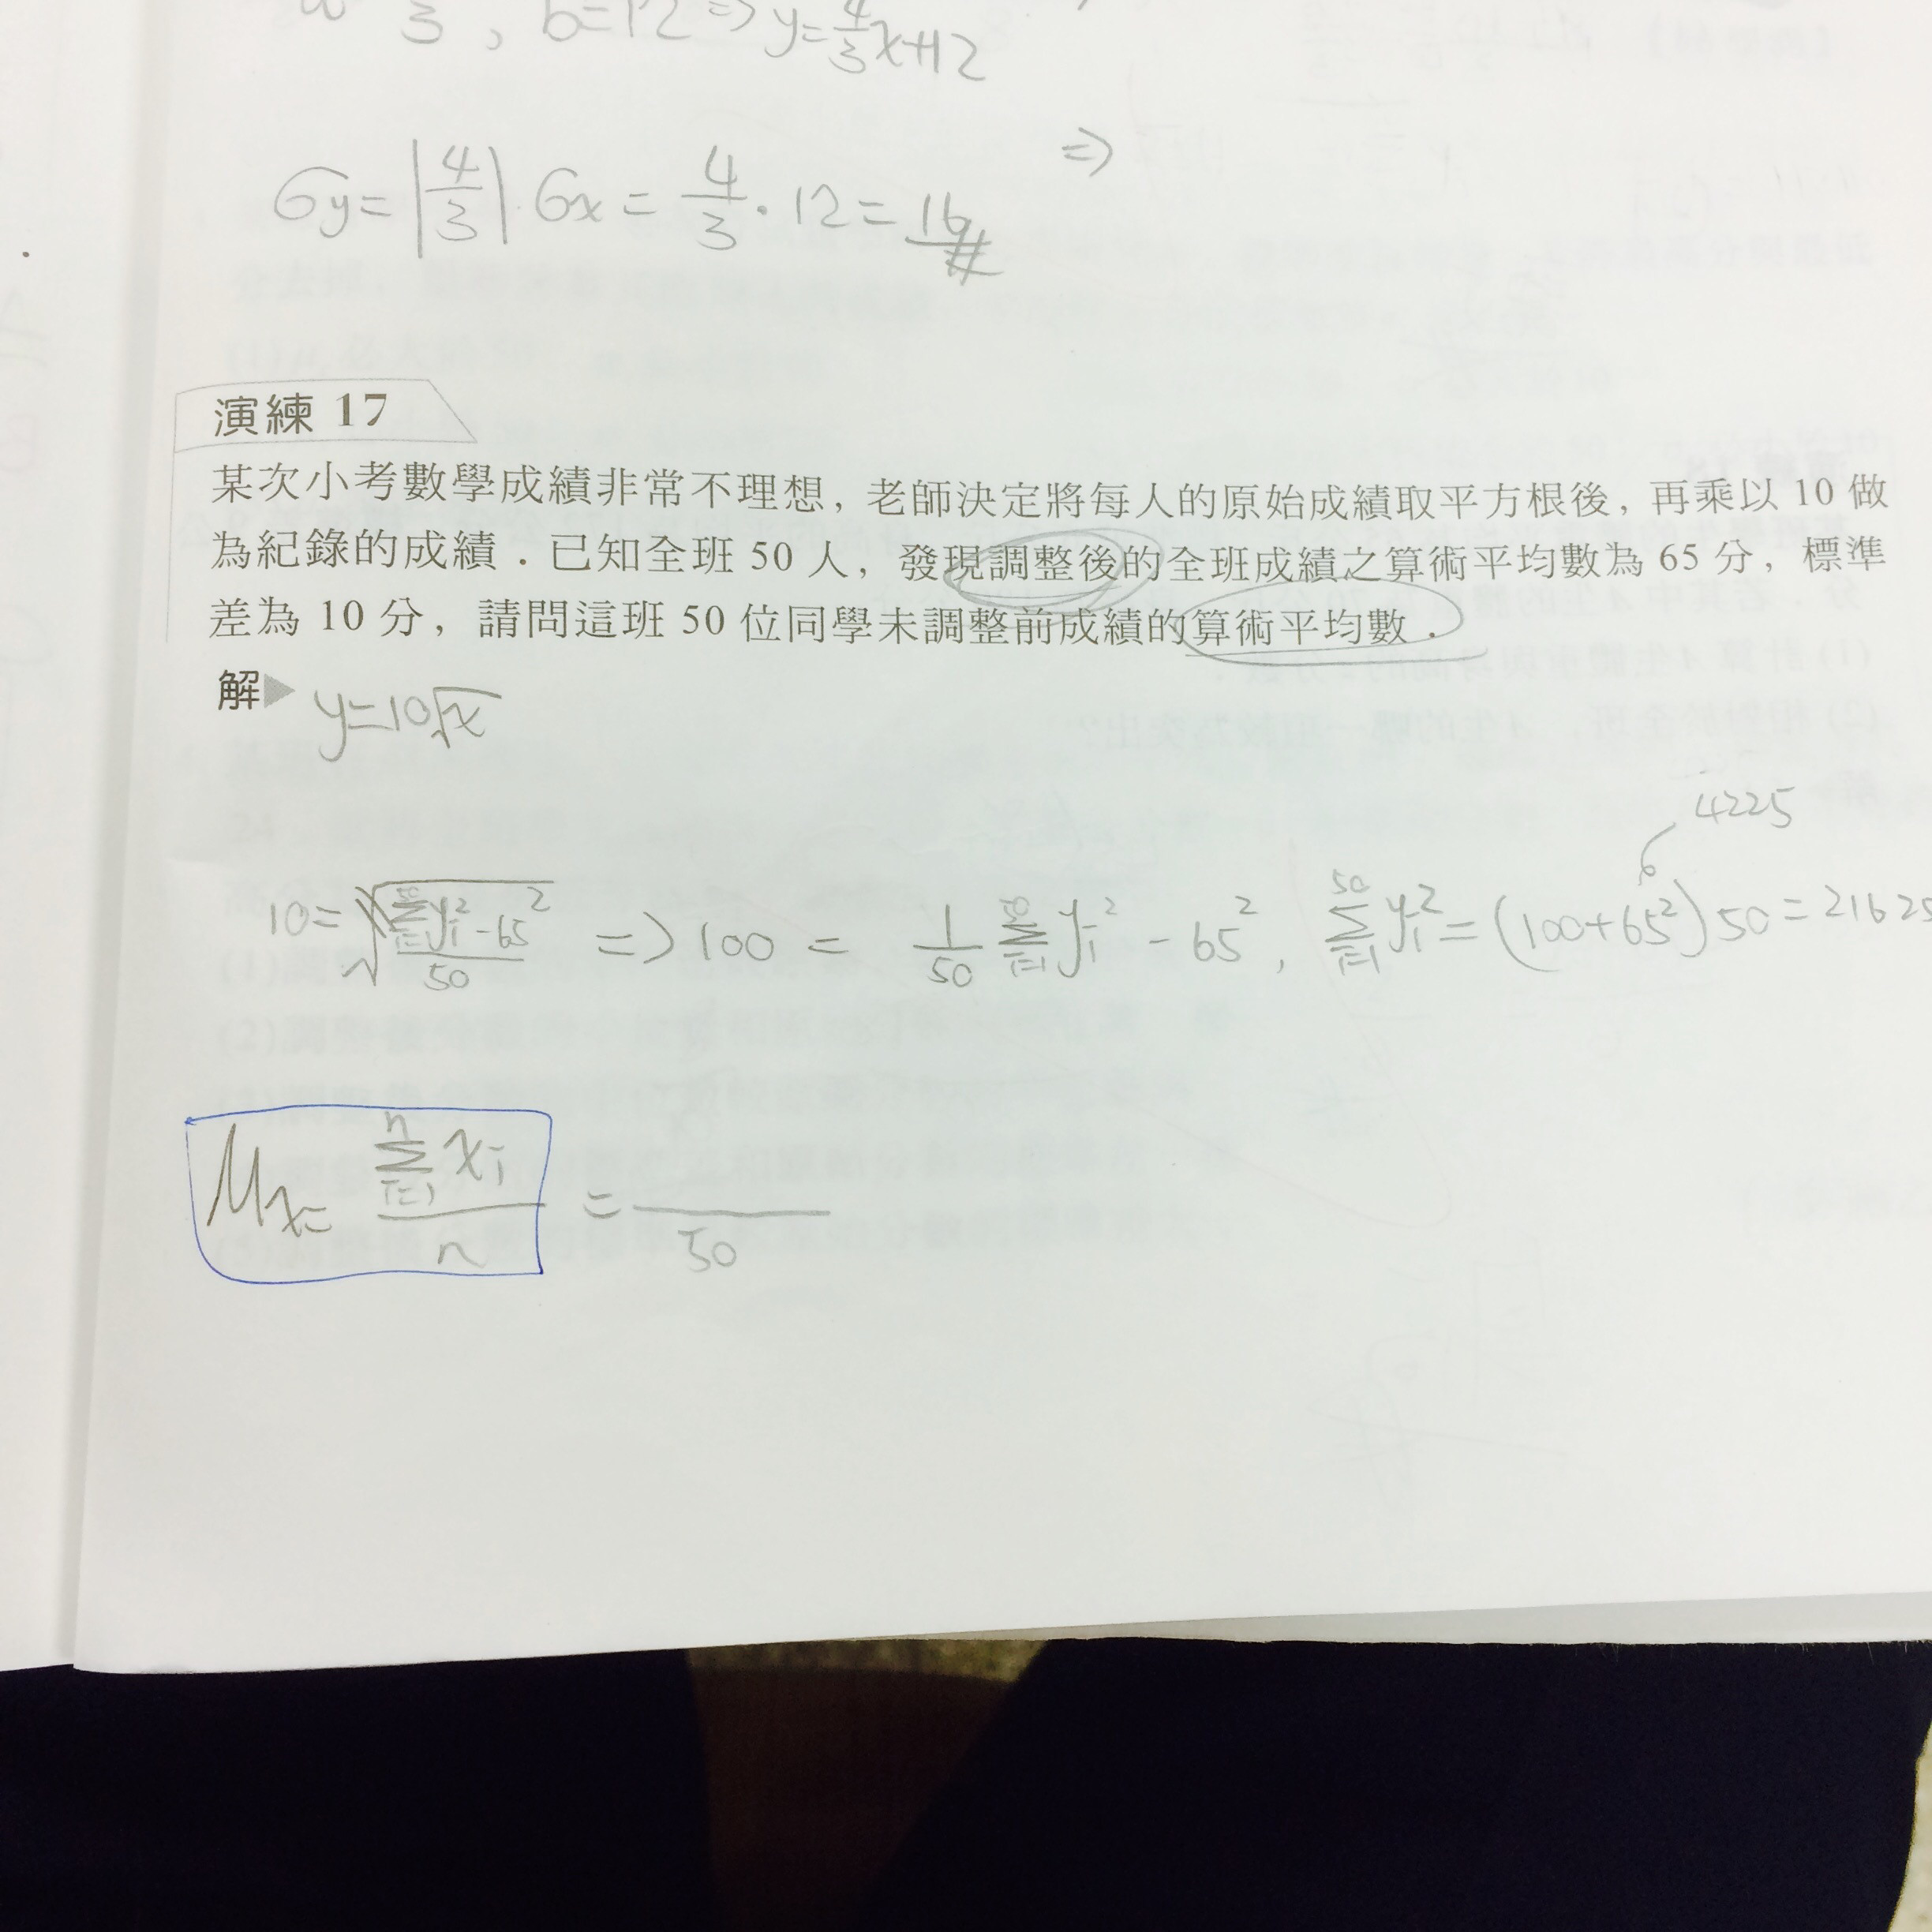 3, b=12 ⇒ y=4/3x+12
⇒
σy=|4/3|·σx=4/3·12=16#
演練 17
某次小考數學成績非常不理想，老師決定將每人的原始成績取平方根後，再乘以 10 做
為紀錄的成績．已知全班 50 人，發現調整後的全班成績之算術平均數為 65 分，標準
差為 10 分，請問這班 50 位同學未調整前成績的算術平均數．
解▶ y=10√x
4225
10=√(Σyi²-65²)/50 ⇒ 100 = 1/50 Σ(i=1..50) yi² - 65², Σ(i=1..50) yi²=(100+65²)50=21625
μx= Σ(i=1..n) xi / n = /50